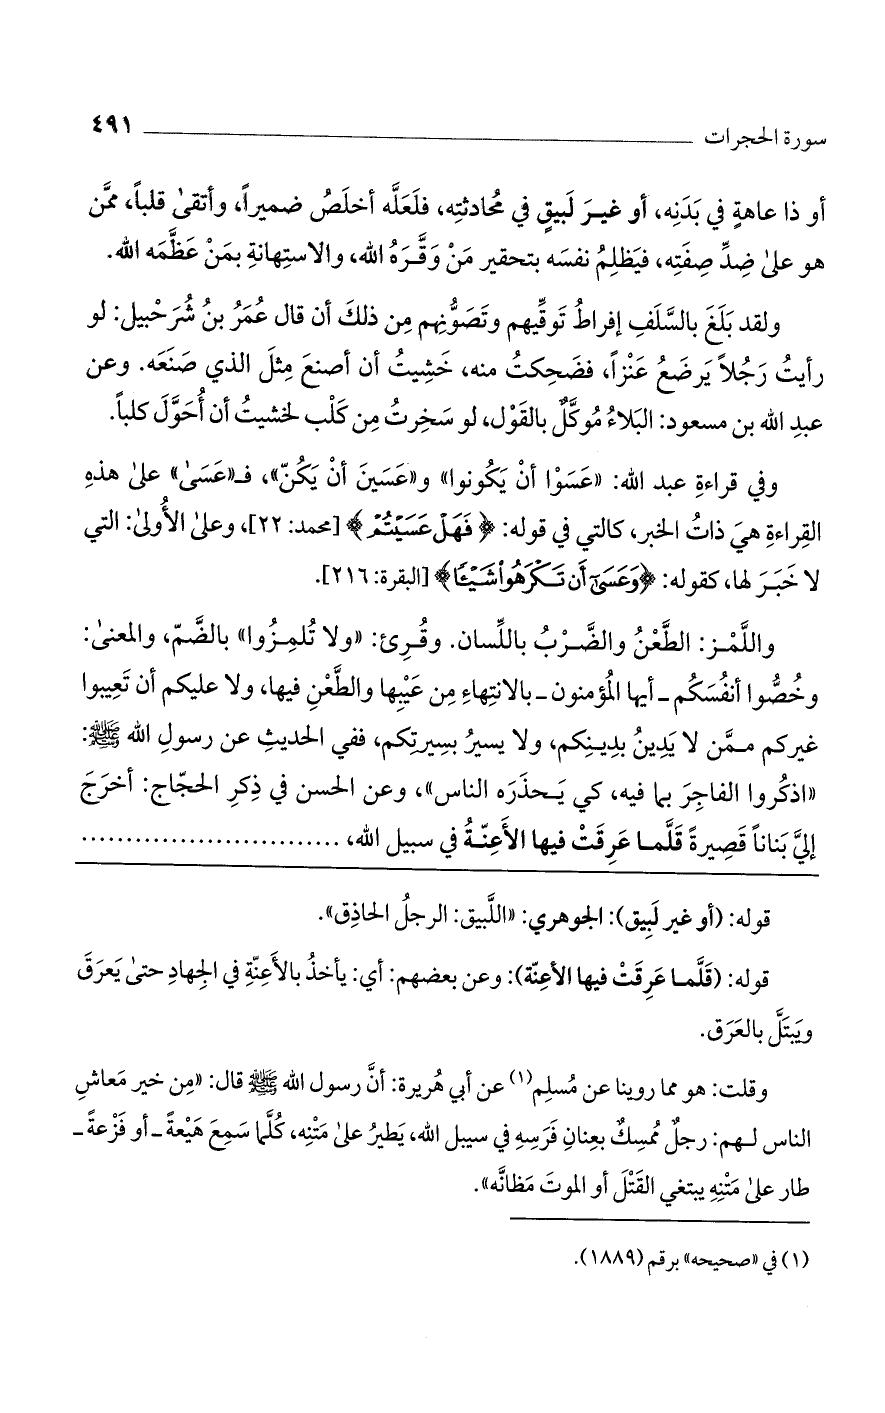 سورة الحجرات ٤٩١
أو ذا عاهةٍ في بَدَنِه، أو غيرَ لَبيقٍ في مُحادثتِه، فلَعَلَّه أخلَصُ ضميراً، وأتقىٰ قلباً، ممَّن
هو علىٰ ضِدِّ صِفَتِه، فيَظلِمُ نفسَه بتحقير مَنْ وَقَّرَهُ الله، والاستِهانةِ بمَنْ عَظَّمَه الله.
ولقد بَلَغَ بالسَّلَفِ إفراطُ تَوقِّيهم وتَصَوُّنِهم مِن ذلكَ أن قال عُمَرُ بنُ شُرَحْبيل: لو
رأيتُ رَجُلاً يَرضَعُ عَنْزاً، فضَحِكتُ منه، خَشِيتُ أن أصنعَ مِثلَ الذي صَنَعَه. وعن
عبدِ الله بن مسعود: البَلاءُ مُوكَّلٌ بالقَوْل، لو سَخِرتُ مِن كَلْب لخشيتُ أن أُحَوَّلَ كلباً.
وفي قراءةِ عبد الله: «عَسَوْا أنْ يَكُونوا» و«عَسَينَ أنْ يَكُنّ»، فـ«عَسَىٰ» علىٰ هذهِ
القِراءةِ هيَ ذاتُ الخبر، كالتي في قوله: ﴿فَهَلْ عَسَيْتُمْ﴾ [محمد: ٢٢]، وعلىٰ الأُولىٰ: التي
لا خَبَرَ لها، كقوله: ﴿وَعَسَىٰٓ أَن تَكْرَهُوا۟ شَيْـًٔا﴾ [البقرة: ٢١٦].
واللَّمْز: الطَّعْنُ والضَّرْبُ باللِّسان. وقُرِئ: «ولا تُلمِزُوا» بالضَّمّ، والمعنىٰ:
وخُصُّوا أنفُسَكُم ـ أيها المُؤمنون ـ بالانتِهاءِ مِن عَيْبِها والطَّعْنِ فيها، ولا عليكم أن تَعِيبوا
غيركم مـمَّن لا يَدِينُ بدِينِكم، ولا يسيرُ بسِيرتِكم، ففي الحديثِ عن رسولِ الله ﷺ:
«اذكُروا الفاجِرَ بما فيه، كي يَـحذَرَه الناس»، وعن الحسن في ذِكرِ الحجّاج: أخرَجَ
إليَّ بَناناً قَصِيرةً قَلَّمـا عَرِقَتْ فيها الأَعِنّـةُ في سبيل الله، .............................
قوله: (أو غير لَبِيق): الجوهري: «اللَّبيق: الرجلُ الحاذِق».
قوله: (قَلَّمـا عَرِقَتْ فيها الأعِنّة): وعن بعضهم: أي: يأخذُ بالأَعِنّةِ في الجِهادِ حتىٰ يَعرَقَ
ويَبتَلَّ بالعَرَق.
وقلت: هو مما روينا عن مُسلِم(١) عن أبي هُريرة: أنَّ رسول الله ﷺ قال: «مِن خير مَعاشِ
الناس لـهم: رجلٌ مُمسِكٌ بعِنانِ فَرَسِهِ في سبيل الله، يَطيرُ علىٰ مَتْنِه، كُلَّما سَمِعَ هَيْعةً ـ أو فَزْعةً ـ
طار علىٰ مَتْنِهِ يبتغي القَتْلَ أو الموتَ مَظانَّه».
(١) في «صحيحه» برقم (١٨٨٩).